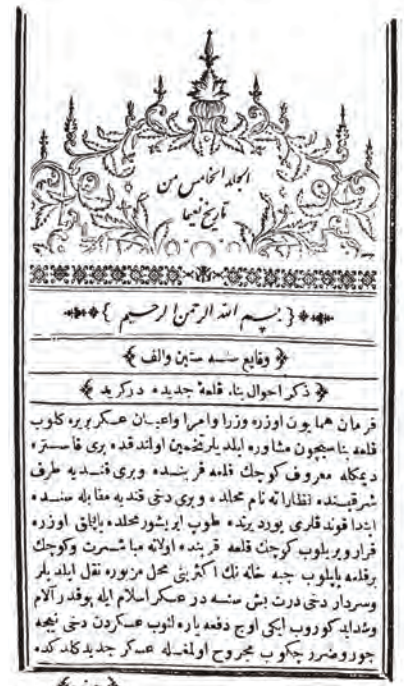 الجلد الخامس من
تاريخ نعيما
بسم الله الرحمن الرحيم
وقايع سنه ستين والف
ذكر احوال بناء قلعهٔ جديده در كريد
فرمان همايون اوزره وزرا وامرا واعيان عسكر بريره كلوب
قلعه بناسيچون مشاوره ايلديلر تخمين اولندقده برى
ديمكله معروف كوچك قلعه قربنده وبرى قنديه طرف
شرقيسنده نام محلده وبرى دخى قنديه مقابله سنده
ابتدا قوندقلرى يورد يرنده طوپ ايريشور محلده ياپلق اوزره
قرار ويريلوب كوچك قلعه قربنده اولانه مباشرت وكوچك
برقلعه ياپيلوب جبه خانه نك اكثريى محل مزبوره نقل ايلديلر
وسردار دخى درت بش سنه در عسكر اسلام ايله بوقدر آلام
وشدايد كوروب ايكى اوچ دفعه ياره لنوب عسكردن دخى نيجه
جور وضرر چكوب مجروح اولمغله عسكر جديد كلدكده